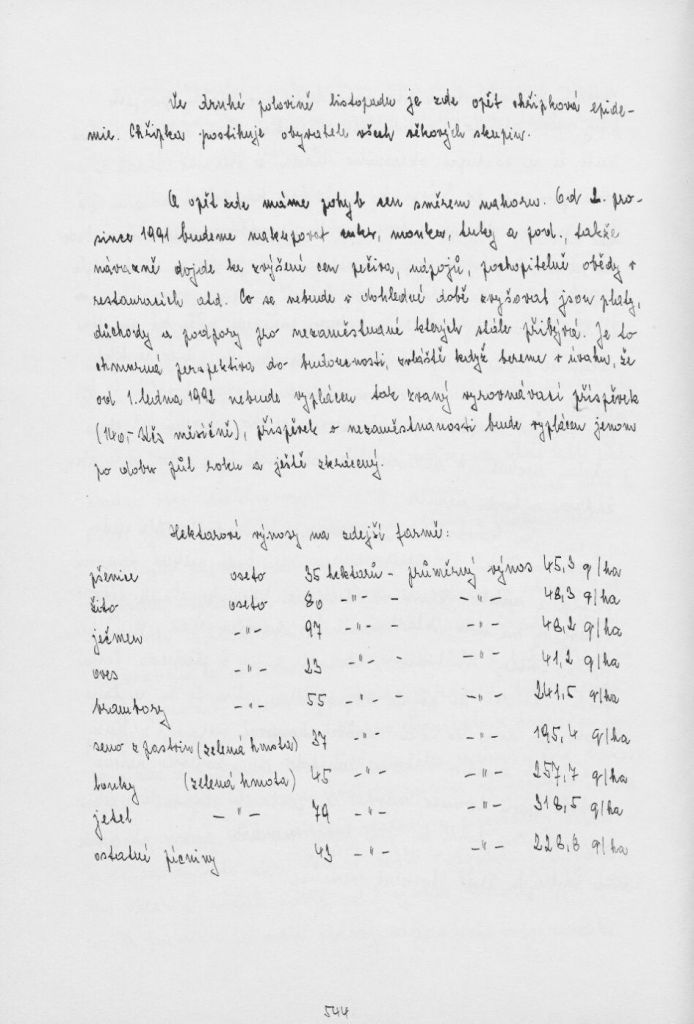 Ve druhé polovině listopadu je zde opět chřipková epide-
mie. Chřipka postihuje obyvatele všech věkových skupin.
A opět zde máme pohyb cen směrem nahoru. Od 1. pro-
since 1991 budeme nakupovat cukr, mouku, tuky a pod., takže
návazně dojde ke zvýšení cen pečiva, nápojů, pochopitelně obědy v
restauracích atd. Co se nebude v dohledné době zvyšovat jsou platy,
důchody a podpory pro nezaměstnané kterých stále přibývá. Je to
chmurná perspektiva do budoucnosti, zvláště když bereme v úvahu, že
od 1. ledna 1992 nebude vyplácen tak zvaný vyrovnávací příspěvek
(140,- Kčs měsíčně), příspěvek v nezaměstnanosti bude vyplácen jenom
po dobu půl roku a ještě zkrácený.
Hektarové výnosy na zdejší farmě:
pšenice oseto 35 hektarů - průměrný výnos 45,3 q/ha
žito oseto 80 -"- - -"- 48,3 q/ha
ječmen -"- 97 -"- - -"- 48,2 q/ha
oves -"- 23 -"- - -"- 41,2 q/ha
brambory -"- 55 -"- - -"- 241,5 q/ha
seno z pastvin (zelená hmota) 37 -"- -"- 195,4 q/ha
louky (zelená hmota) 45 -"- -"- 257,7 q/ha
jetel -"- 79 -"- -"- 318,5 q/ha
ostatní pícniny 43 -"- -"- 228,8 q/ha
544